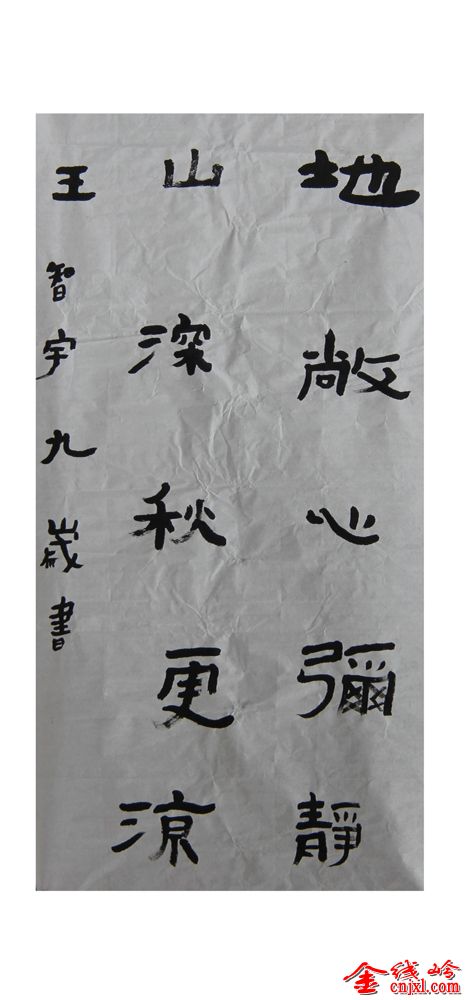 地敞心彌靜
山深秋更涼
王智宇九歲書
金线岭
cnjxl.com